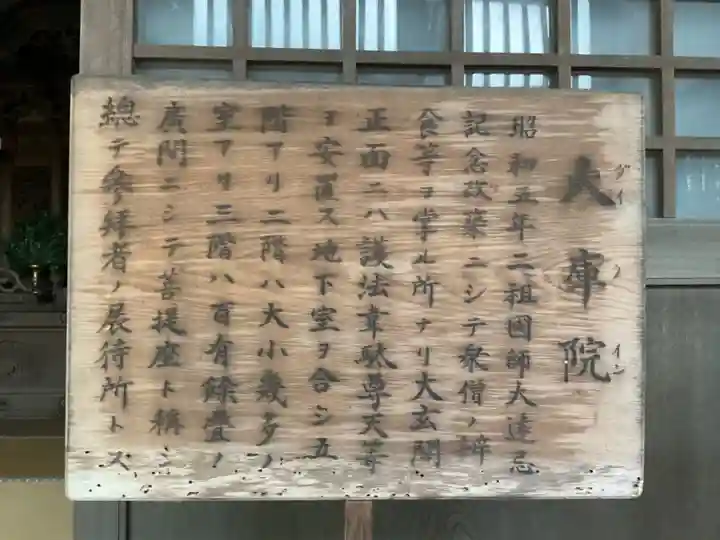 大庫院
ダイ ノ イン
昭和五年二祖國師大遠忌
記念改築ニシテ衆僧ノ
食等ヲ掌ル所ナリ大玄関
正面ニハ護法韋駄尊天等
ヲ安置ス地下室ヲ合シ五
階アリ二階ハ大小幾多ノ
室アリ三階ハ百有餘疊ノ
廣間ニシテ菩提座ト稱シ
總テ參拜者ノ展待所トス